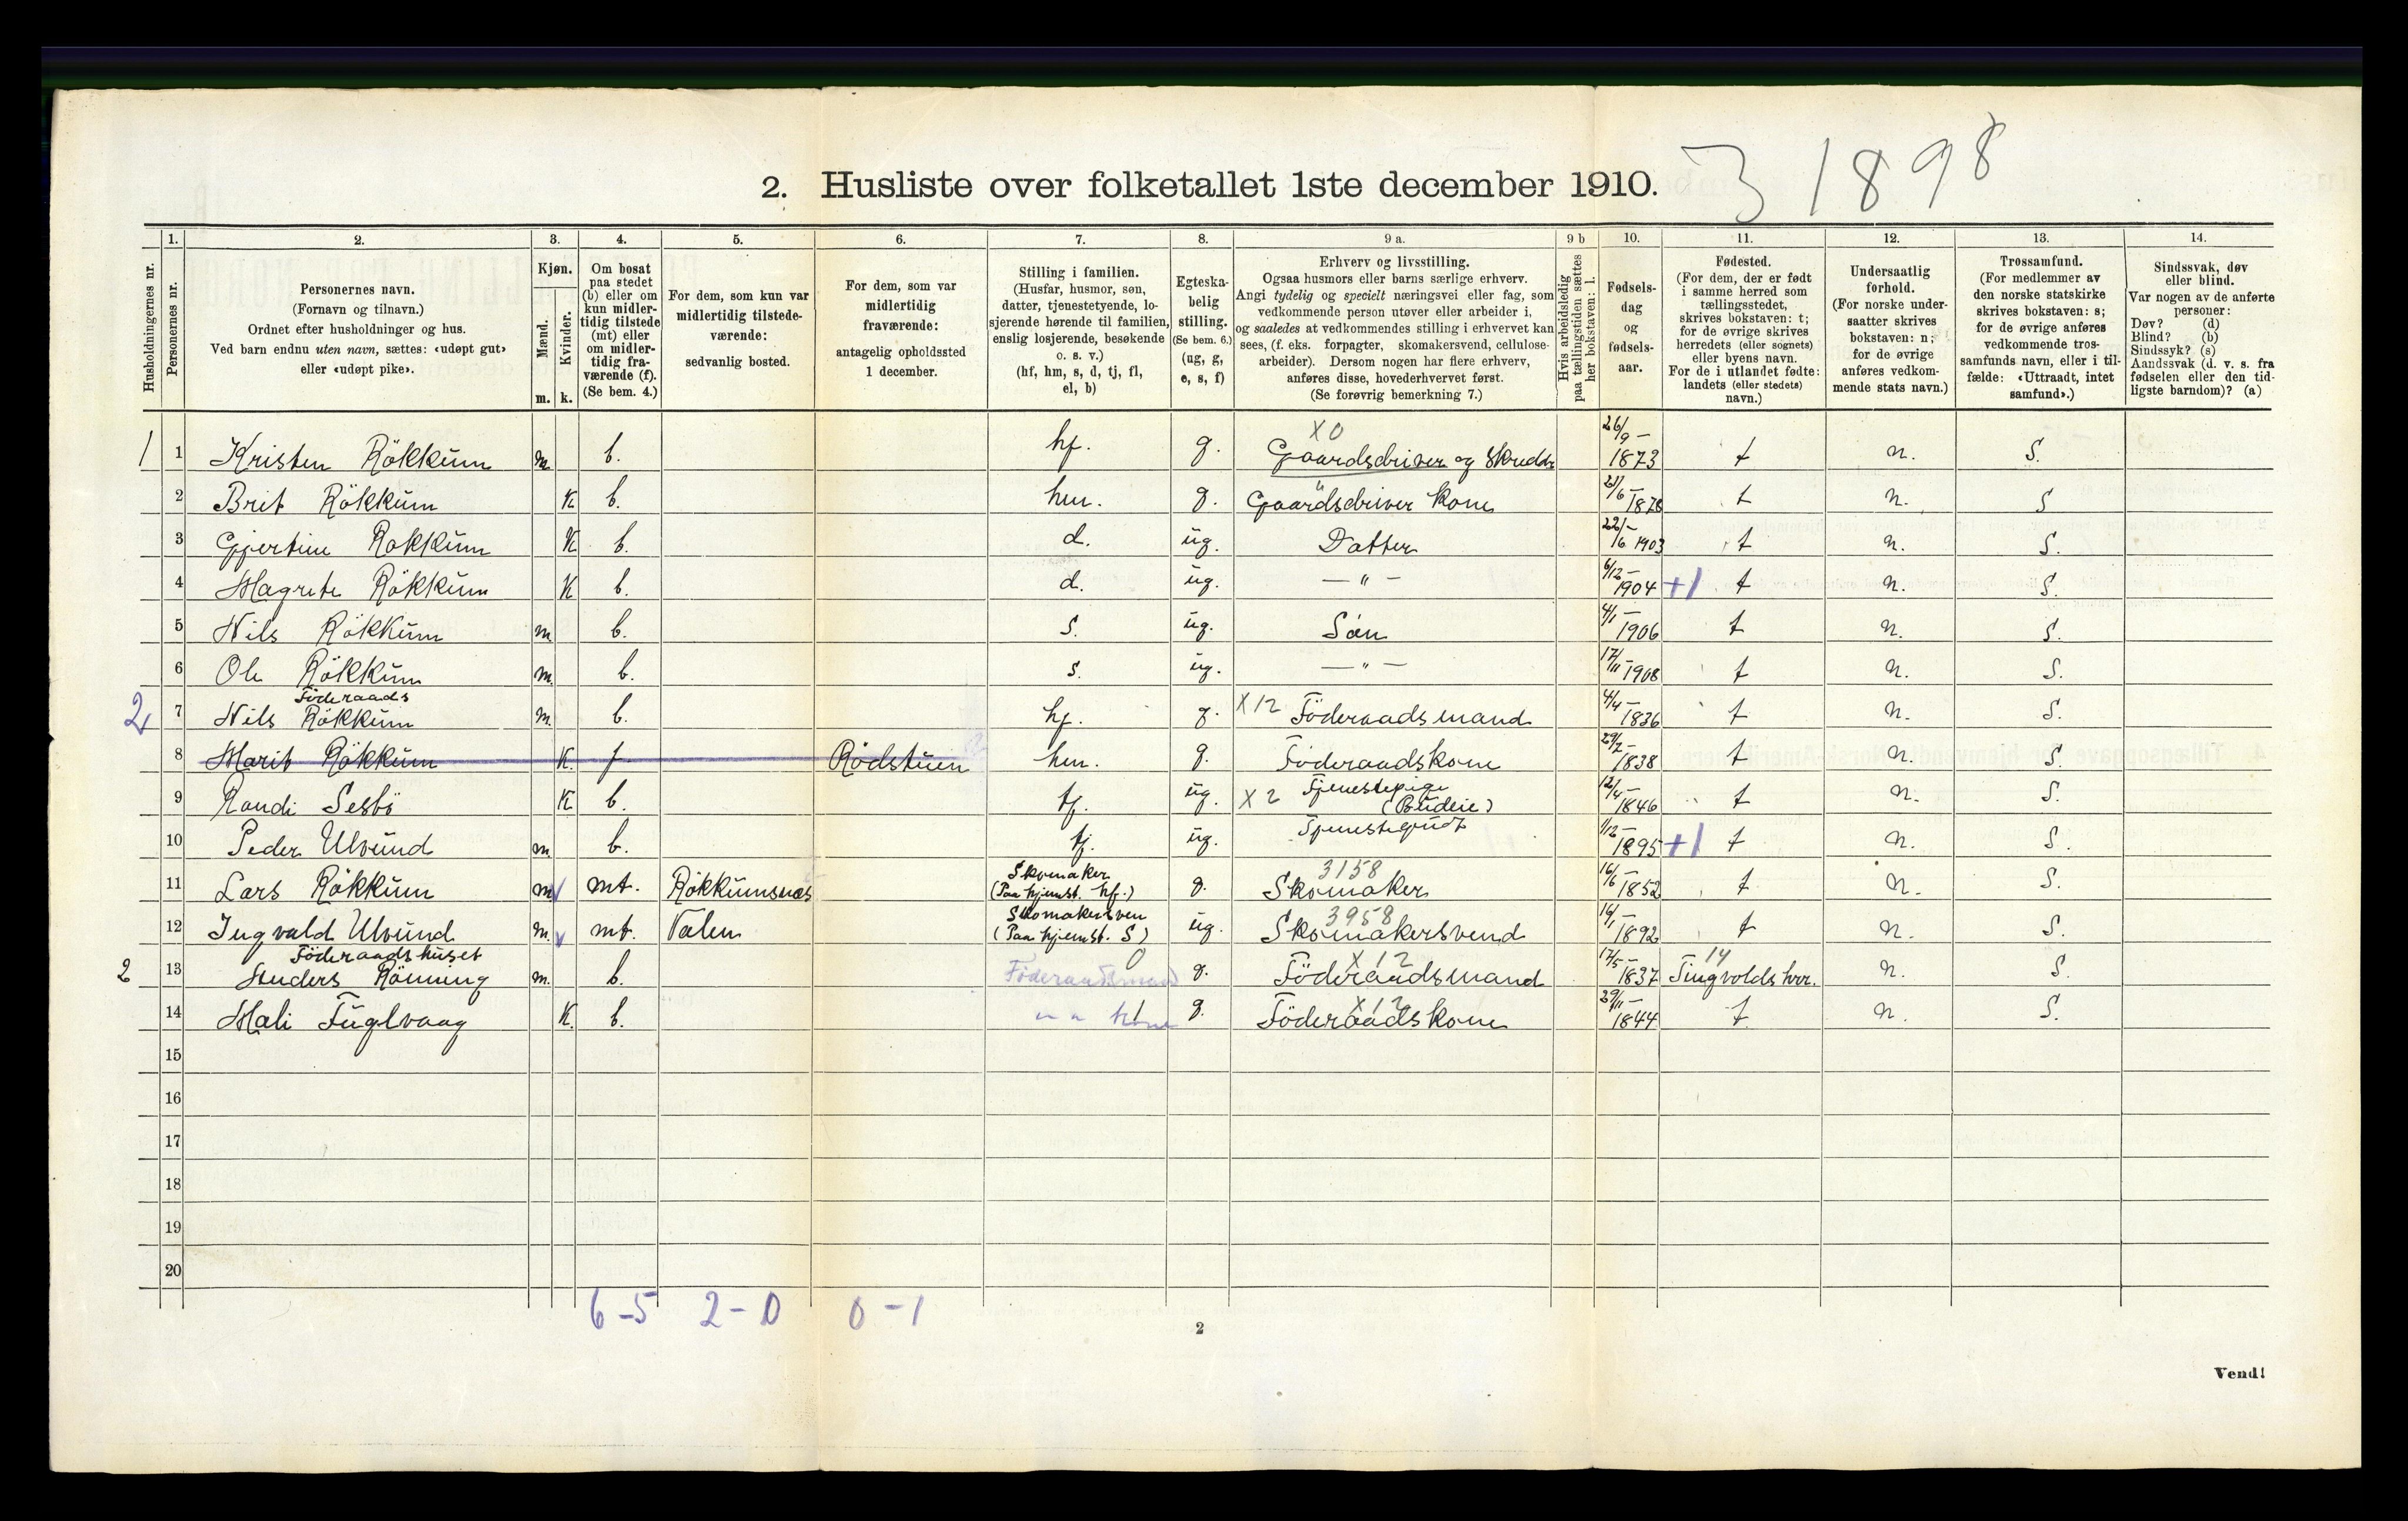 2. Husliste over folketallet 1ste december 1910.
3 1898
Husholdningernes nr.
1.
Personernes nr.
2.
Personernes navn.
(Fornavn og tilnavn.)
Ordnet efter husholdninger og hus.
Ved barn endnu uten navn, sættes: «udøpt gut»
eller «udøpt pike».
3.
Kjøn.
Mænd. Kvinder.
m. k.
4.
Om bosat
paa stedet
(b) eller om
kun midler-
tidig tilstede
(mt) eller
om midler-
tidig fra-
værende (f).
(Se bem. 4.)
5.
For dem, som kun var
midlertidig tilstede-
værende:
sedvanlig bosted.
6.
For dem, som var
midlertidig
fraværende:
antagelig opholdssted
1 december.
7.
Stilling i familien.
(Husfar, husmor, søn,
datter, tjenestetyende, lo-
sjerende hørende til familien,
enslig losjerende, besøkende
o. s. v.)
(hf, hm, s, d, tj, fl,
el, b)
8.
Egteska-
belig
stilling.
(Se bem. 6.)
(ug, g,
e, s, f)
9 a.
Erhverv og livsstilling.
Ogsaa husmors eller barns særlige erhverv.
Angi tydelig og specielt næringsvei eller fag, som
vedkommende person utøver eller arbeider i,
og saaledes at vedkommendes stilling i erhvervet kan
sees, (f. eks. forpagter, skomakersvend, cellulose-
arbeider). Dersom nogen har flere erhverv,
anføres disse, hovederhvervet først.
(Se forøvrig bemerkning 7.)
9 b
Hvis arbeidsledig
paa tællingstiden sættes
her bokstaven: l.
10.
Fødsels-
dag
og
fødsels-
aar.
11.
Fødested.
(For dem, der er født
i samme herred som
tællingsstedet,
skrives bokstaven: t;
for de øvrige skrives
herredets (eller sognets)
eller byens navn.
For de i utlandet fødte:
landets (eller stedets)
navn.)
12.
Undersaatlig
forhold.
(For norske under-
saatter skrives
bokstaven: n;
for de øvrige
anføres vedkom-
mende stats navn.)
13.
Trossamfund.
(For medlemmer av
den norske statskirke
skrives bokstaven: s;
for de øvrige anføres
vedkommende tros-
samfunds navn, eller i til-
fælde: «Uttraadt, intet
samfund».)
14.
Sindssvak, døv
eller blind.
Var nogen av de anførte
personer:
Døv? (d)
Blind? (b)
Sindssyk? (s)
Aandssvak (d. v. s. fra
fødselen eller den tid-
ligste barndom)? (a)
1 1 Kristen Rökkum m. b. hf. g. X0 Gaardsdriver og Skredder 26/9 - 1873 t n. S.
2 Brit Rökkum K b. hm. g. Gaardsdriver Kone 21/6 - 1878 t n. S
3 Gjertine Rokkum K b. d. ug. Datter 22/6 - 1903 t n. S.
4 Magrete Rökkum K b. d. ug. — " — 6/12 - 1904 +1 t n. S.
5 Nils Rökkum m. b. S. ug. Sön 4/1 - 1906 t n. S.
6 Ole Rökkum m. b. s. ug. — " — 17/11 - 1908 t n. S.
Föderaads
2 7 Nils Rökkum m. b. hf. g. X12 Föderaadsmand 4/4 - 1836 t n. S.
8 Marit Rökkum K. f Rödstuen hm. g. Föderaadskone 29/7 - 1838 t n. S.
9 Randi Sesbö K b. tj. ug. X2 Tjenestepige (Budeie) 12/4 - 1846 t n. S.
10 Peder Ulvund m. b. tj. ug. Tjenestegudt 1/12 - 1895 +1 t n. S.
11 Lars Rökkum m v mt. Rökkumsnæs Skomaker (Paa hjemst. hf.) g. 3158 Skomaker 16/6 - 1852 t n. S.
12 Ingvald Ulvund m. v mt. Valen Skomakersven (Paa hjemst. S) ug. 3958 Skomakersvend 16/1 - 1892 t n. S.
Föderaadshuset
2 13 Anders Rönning m. b. Föderaadsmand 0 g. X12 Föderaadsmand 17/5 - 1837 14 Tingvolds hrr. n. S.
14 Mali Fuglvaag K. b. " " kone 1 g. X12 Föderaadskone 29/11 - 1844 t n. S.
15
16
17
18
19
20
6 - 5 2 - 0 0 - 1
2
Vend!